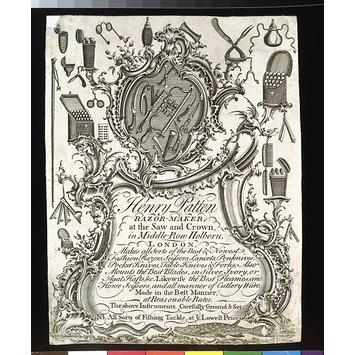 Henry Patten
RAZOR-MAKER,
at the Saw and Crown,
in Middle-Row Holborn,
LONDON.
Makes all Sorts of the Best & Newest
Fashion Razors, Scissors, Lancets, Penknives,
Pocket Knives, Table Knives & Forks. Also
Mounts the Best Blades, in Silver, Ivory, or
Agat Hafts &c. Likewise the Best Fleams, and
Horse Scissors, and all manner of Cutlery Ware,
Made in the Best Manner,
at Reasonable Rates.
The above Instruments, Carefully Ground & Set.
NB. All Sorts of Fishing Tackle, at ye Lowest Prices.